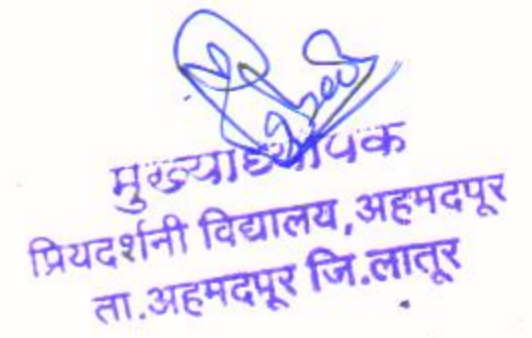 मुख्याध्यापक
प्रियदर्शनी विद्यालय,अहमदपूर
ता.अहमदपूर जि.लातूर